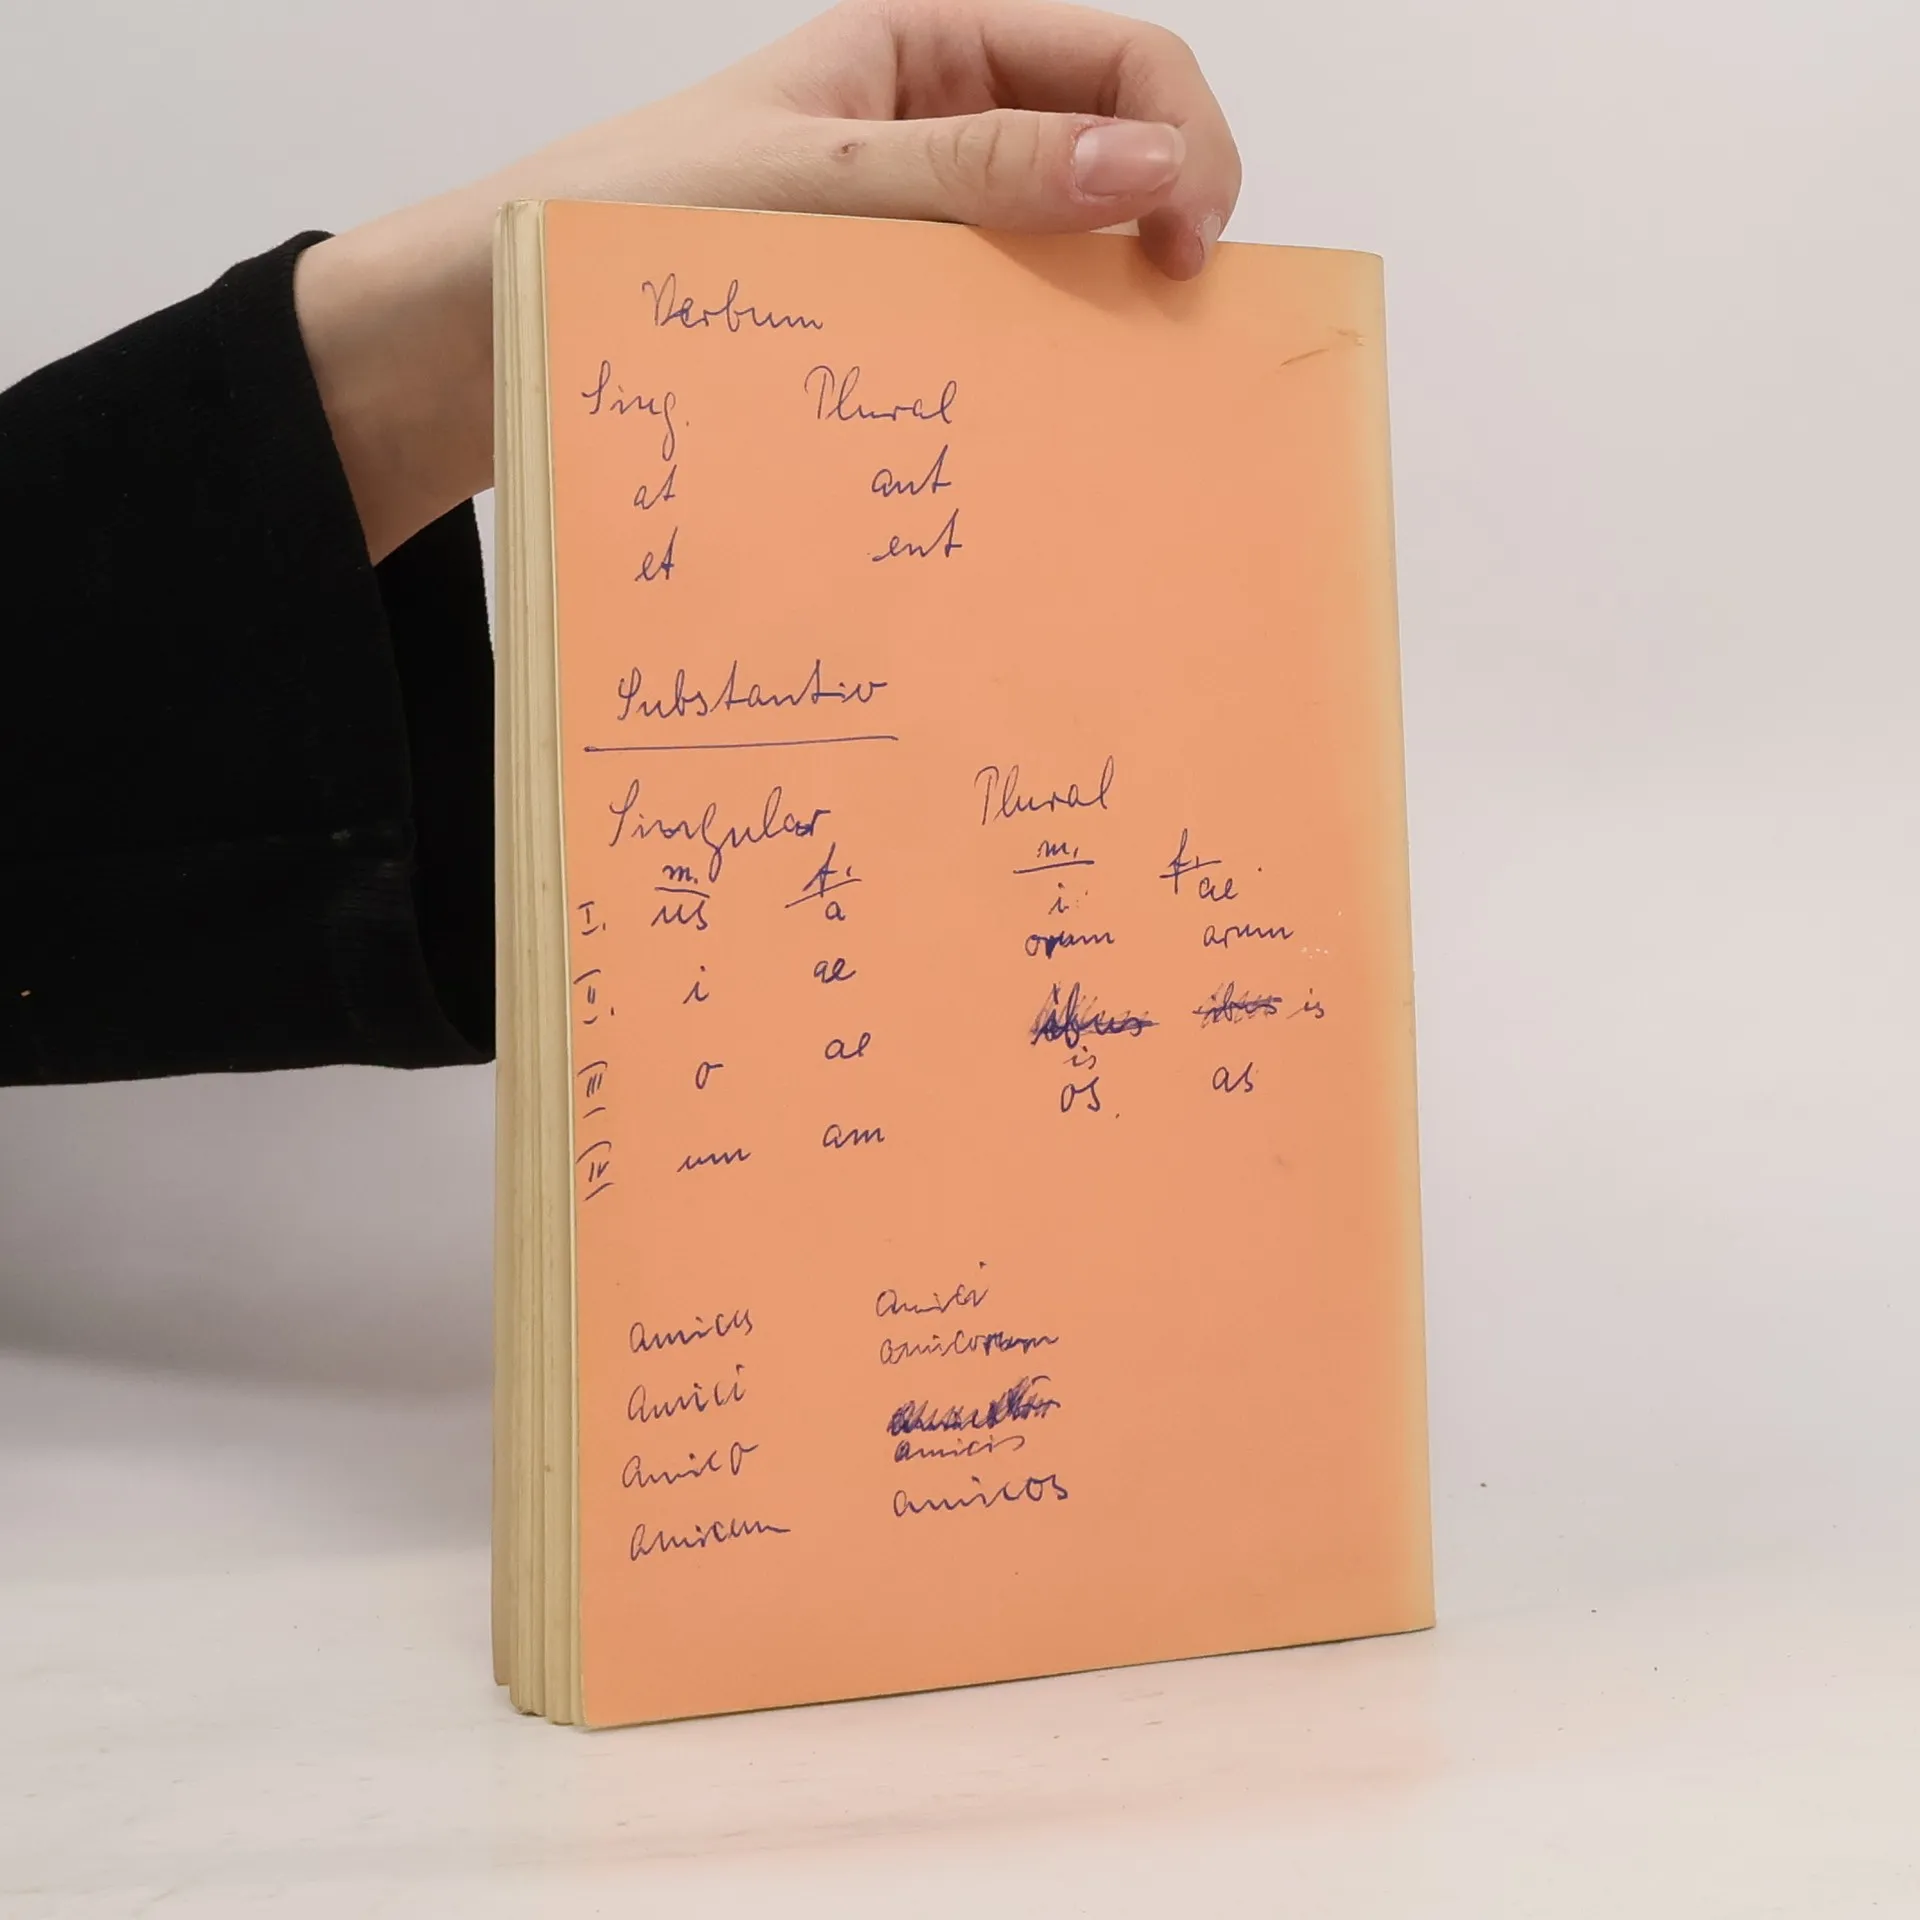 Verbum
Sing. Plural
at ant
et ent
Substantiv
Singular Plural
m. f. m. f.
I. us a i ae
II. i ae orum arum
III o ae ibus is ibus is
IV um am os as
amicus amici
amici amicorum
amico amicis
amicum amicos